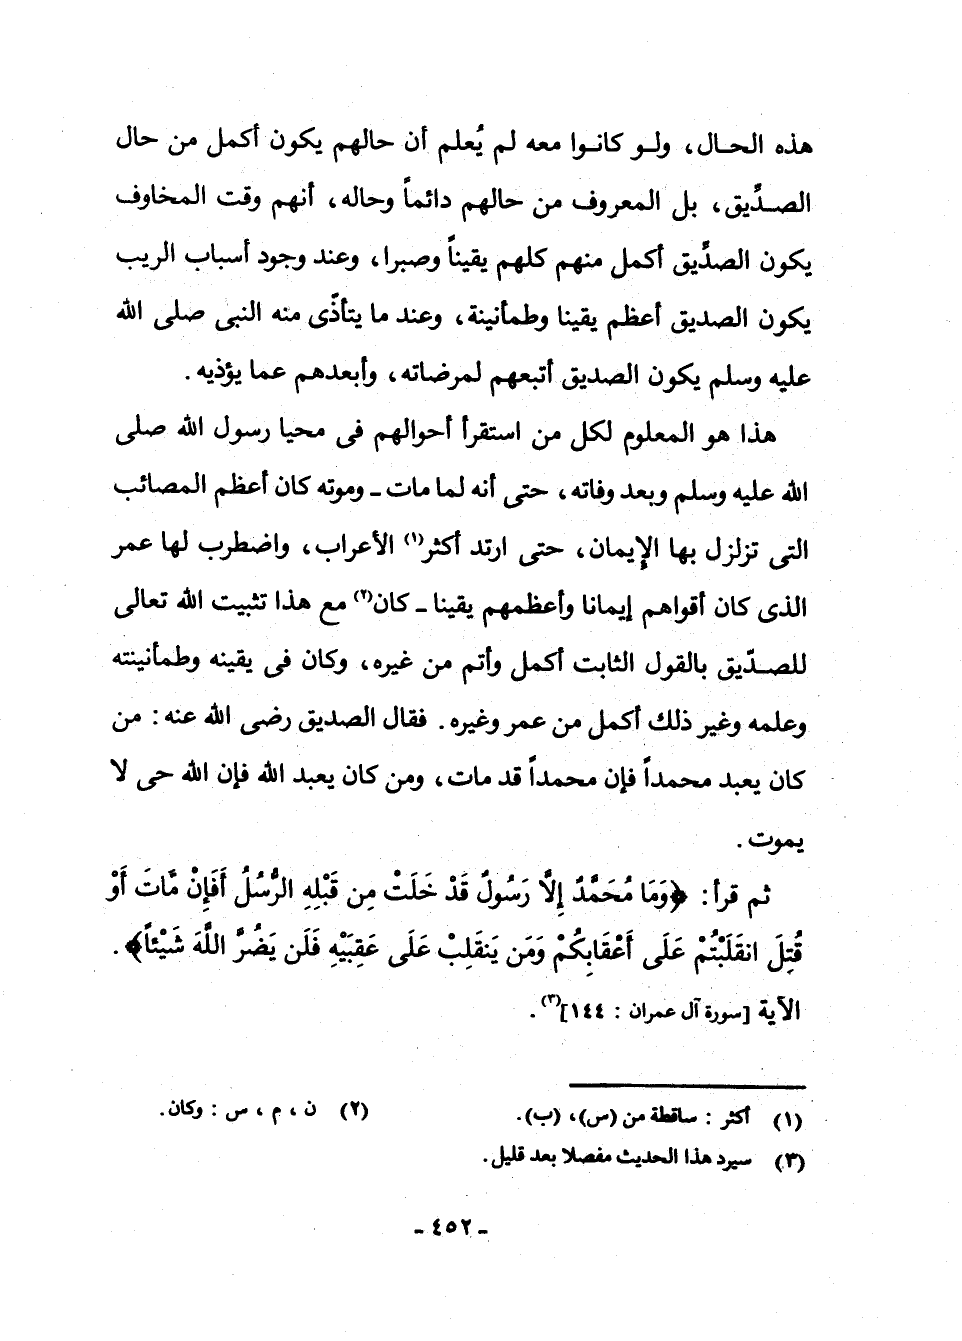 هذه الحـال، ولـو كانـوا معه لم يُعلم أن حالهم يكون أكمل من حال
الصـدِّيق، بل المعروف من حالهم دائماً وحاله، أنهم وقت المخاوف
يكون الصدِّيق أكمل منهم كلهم يقيناً وصبرا، وعند وجود أسباب الريب
يكون الصديق أعظم يقينا وطمأنينة، وعند ما يتأذّى منه النبى صلى الله
عليه وسلم يكون الصديق أتبعهم لمرضاته، وأبعدهم عما يؤذيه.
هذا هو المعلوم لكل من استقرأ أحوالهم فى محيا رسول الله صلى
الله عليه وسلم وبعد وفاته، حتى أنه لما مات ـ وموته كان أعظم المصائب
التى تزلزل بها الإيمان، حتى ارتد أكثر(١) الأعراب، واضطرب لها عمر
الذى كان أقواهم إيمانا وأعظمهم يقينا ـ كان(٢) مع هذا تثبيت الله تعالى
للصـدّيق بالقول الثابت أكمل وأتم من غيره، وكان فى يقينه وطمأنينته
وعلمه وغير ذلك أكمل من عمر وغيره. فقال الصديق رضى الله عنه: من
كان يعبد محمداً فإن محمداً قد مات، ومن كان يعبد الله فإن الله حى لا
يموت.
ثم قرأ: ﴿وَمَا مُحَمَّدٌ إِلَّا رَسُولٌ قَدْ خَلَتْ مِن قَبْلِهِ الرُّسُلُ أَفَإِنْ مَّاتَ أَوْ
قُتِلَ انقَلَبْتُمْ عَلَى أَعْقَابِكُمْ وَمَن يَنقَلِبْ عَلَى عَقِبَيْهِ فَلَن يَضُرَّ اللَّهَ شَيْئاً﴾.
الآية [سورة آل عمران : ١٤٤](٣).
(١) أكثر : ساقطة من (س)، (ب).
(٢) ن ، م ، س : وكان.
(٣) سيرد هذا الحديث مفصلا بعد قليل.
ـ ٤٥٢ ـ